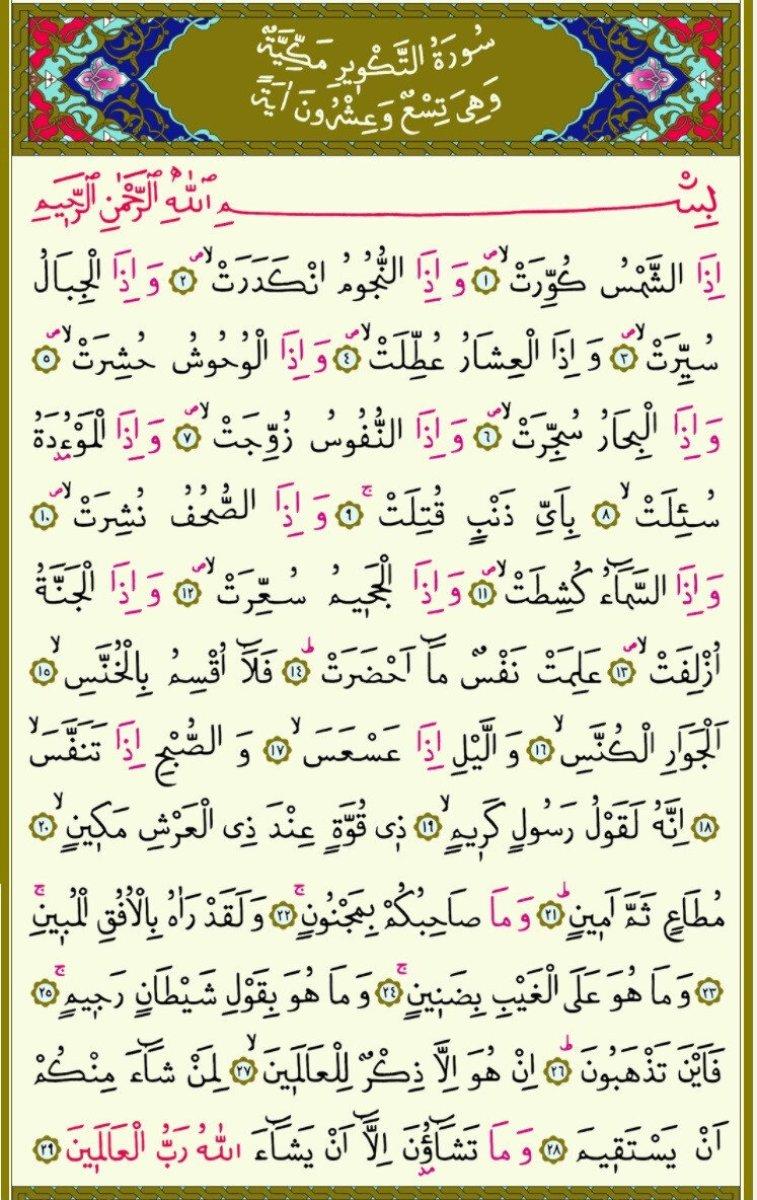 سُورَةُ التَّكْوٖيرِ مَكِّيَّةٌ
وَهِىَ تِسْعٌ وَعِشْرُونَ اٰيَةً
بِسْمِ اللّٰهِ الرَّحْمٰنِ الرَّحٖيمِ
اِذَا الشَّمْسُ كُوِّرَتْۙ ﴿١﴾ وَاِذَا النُّجُومُ انْكَدَرَتْۙ ﴿٢﴾ وَاِذَا الْجِبَالُ
سُيِّرَتْۙ ﴿٣﴾ وَاِذَا الْعِشَارُ عُطِّلَتْۙ ﴿٤﴾ وَاِذَا الْوُحُوشُ حُشِرَتْۙ ﴿٥﴾
وَاِذَا الْبِحَارُ سُجِّرَتْۙ ﴿٦﴾ وَاِذَا النُّفُوسُ زُوِّجَتْۙ ﴿٧﴾ وَاِذَا الْمَوْءُ۫دَةُ
سُئِلَتْۙ ﴿٨﴾ بِاَىِّ ذَنْبٍ قُتِلَتْۚ ﴿٩﴾ وَاِذَا الصُّحُفُ نُشِرَتْۙ ﴿١٠﴾
وَاِذَا السَّمَٓاءُ كُشِطَتْۙ ﴿١١﴾ وَاِذَا الْجَحٖيمُ سُعِّرَتْۙ ﴿١٢﴾ وَاِذَا الْجَنَّةُ
اُزْلِفَتْۙ ﴿١٣﴾ عَلِمَتْ نَفْسٌ مَٓا اَحْضَرَتْۜ ﴿١٤﴾ فَلَٓا اُقْسِمُ بِالْخُنَّسِۙ ﴿١٥﴾
اَلْجَوَارِ الْكُنَّسِۙ ﴿١٦﴾ وَالَّيْلِ اِذَا عَسْعَسَۙ ﴿١٧﴾ وَالصُّبْحِ اِذَا تَنَفَّسَۙ
﴿١٨﴾ اِنَّهُ لَقَوْلُ رَسُولٍ كَرٖيمٍۙ ﴿١٩﴾ ذٖى قُوَّةٍ عِنْدَ ذِى الْعَرْشِ مَكٖينٍۙ ﴿٢٠﴾
مُطَاعٍ ثَمَّ اَمٖينٍۜ ﴿٢١﴾ وَمَا صَاحِبُكُمْ بِمَجْنُونٍۚ ﴿٢٢﴾ وَلَقَدْ رَاٰهُ بِالْاُفُقِ الْمُبٖينِۚ
﴿٢٣﴾ وَمَا هُوَ عَلَى الْغَيْبِ بِضَنٖينٍۚ ﴿٢٤﴾ وَمَا هُوَ بِقَوْلِ شَيْطَانٍ رَجٖيمٍۚ ﴿٢٥﴾
فَاَيْنَ تَذْهَبُونَۜ ﴿٢٦﴾ اِنْ هُوَ اِلَّا ذِكْرٌ لِلْعَالَمٖينَۙ ﴿٢٧﴾ لِمَنْ شَٓاءَ مِنْكُمْ
اَنْ يَسْتَقٖيمَ ﴿٢٨﴾ وَمَا تَشَٓاؤُ۫نَ اِلَّٓا اَنْ يَشَٓاءَ اللّٰهُ رَبُّ الْعَالَمٖينَ ﴿٢٩﴾